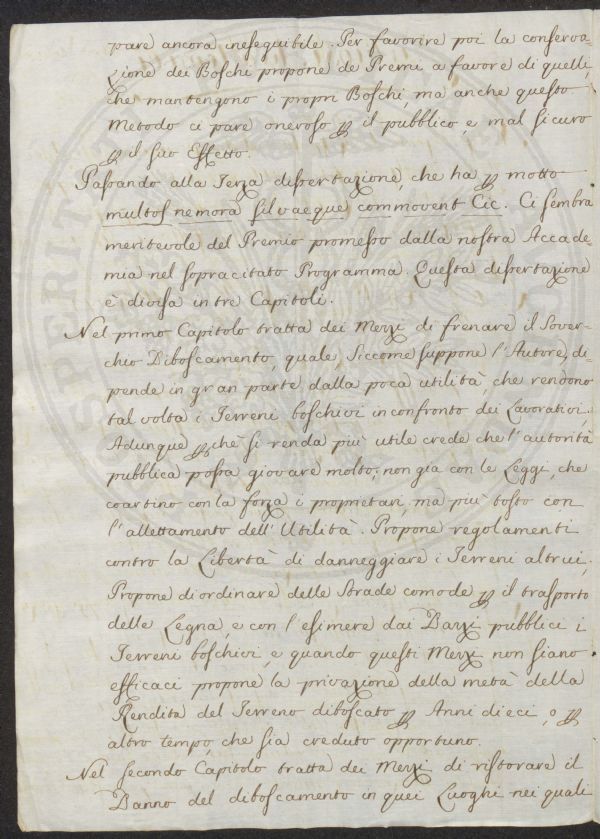 pare ancora ineseguibile. Per favorire poi la conserva-
zione dei Boschi propone de Premi a favore di quelli,
che mantengono i propri Boschi, ma anche questo
Metodo ci pare oneroso p il pubblico, e mal sicuro
p il suo Effetto.
Passando alla Terza dissertazione, che ha p motto
multos nemora silvaeque commovent Cic. Ci sembra
meritevole del Premio promesso dalla nostra Accade-
mia nel sopracitato Programma. Questa dissertazione
è divisa in tre Capitoli.
Nel primo Capitolo tratta dei Mezzi di frenare il Sover-
chio Diboscamento, quale, Siccome suppone l'Autore, di-
pende in gran parte dalla poca utilità, che rendono
tal volta i Terreni boschivi in confronto dei Lavorativi.
Adunque pchè si renda più utile crede che l'autorità
pubblica possa giovare molto, non già con le Leggi, che
coartino con la forza i proprietari, mà più tosto con
l'allettamento dell'Utilità. Propone regolamenti
contro la Libertà di danneggiare i Terreni altrui.
Propone di ordinare delle Strade comode p il trasporto
delle Legna, e con l'esimere dai Dazzi pubblici i
Terreni boschivi, e quando questi Mezzi non siano
efficaci propone la privazione della metà della
Rendita del Terreno diboscato p Anni dieci, o p
altro tempo che sia creduto opportuno.
Nel secondo Capitolo tratta dei Mezzi di ristorare il
Danno del diboscamento in quei Luoghi nei quali